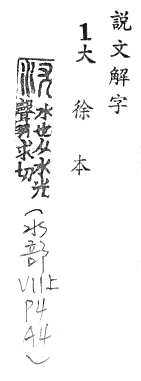 説文解字
1大徐本
沋 水也从水尤
聲羽求切
(水部 VII上 P4 A4)